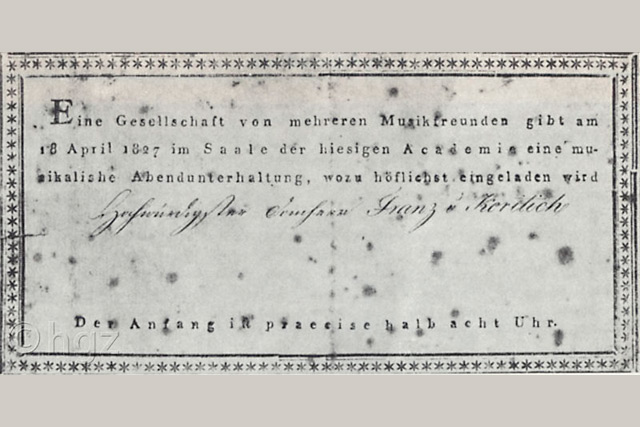 Eine Gesellschaft von mehreren Musikfreunden gibt am
18 April 1827 im Saale der hiesigen Academie eine mu-
sikalishe Abendunterhaltung, wozu höflichst eingeladen wird
Hochwürdigster Domherr Franz v Kortlich
Der Anfang ist praecise halb acht Uhr.
© hgz